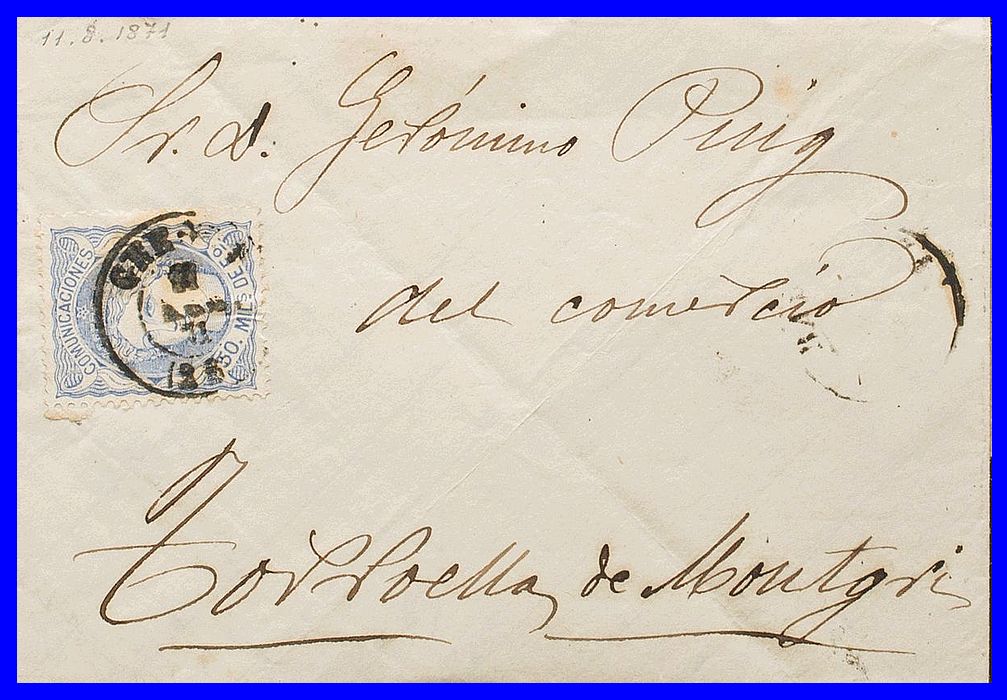 11.8.1871
Sr. d. Gerónimo Puig
del comercio
Torroella de Montgri
COMUNICACIONES
50. MILS DE E.